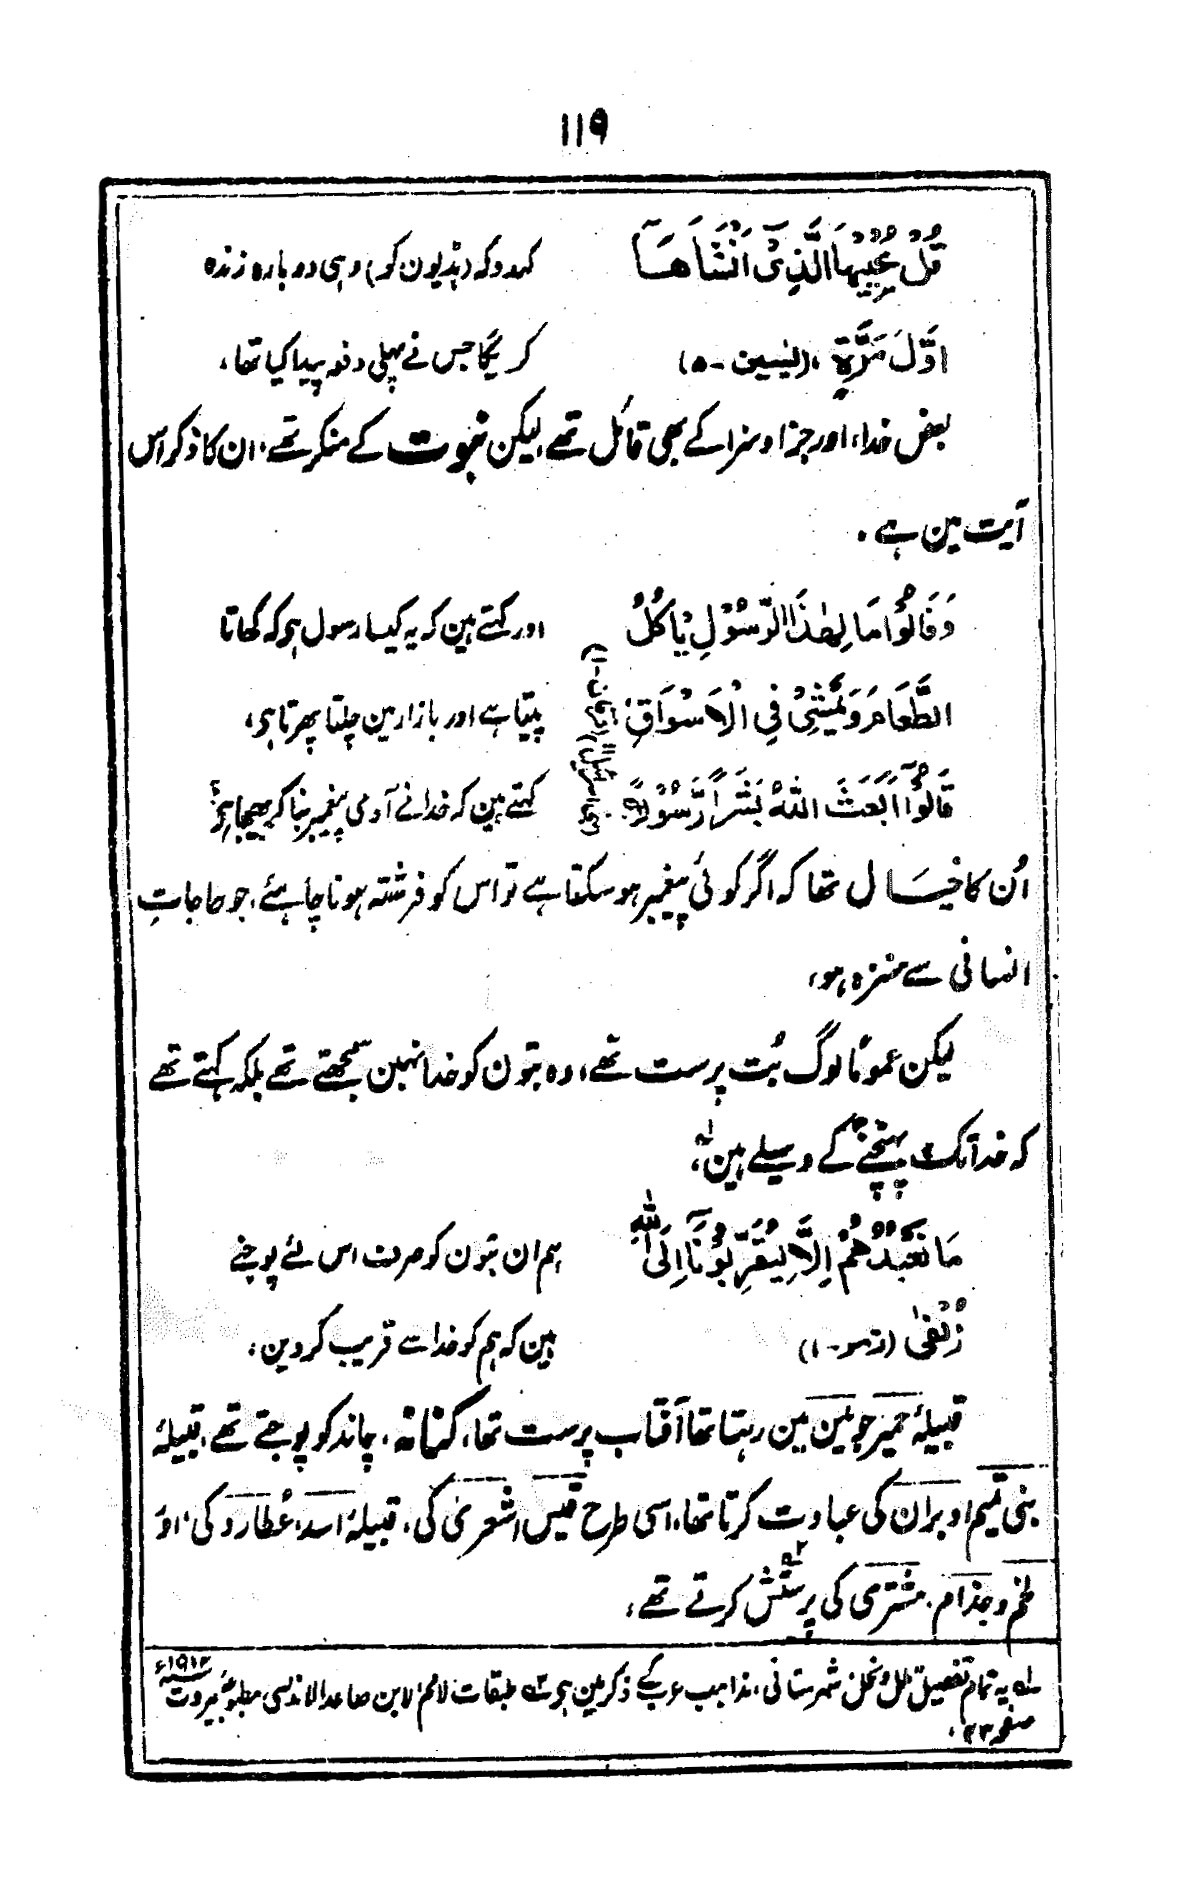 ۱۱۹
قُلْ يُحْيِيْهَا الَّذِىْٓ اَنْشَاَهَآ کہدو کہ (ہڈیون کو) وہی دوبارہ زندہ
اَوَّلَ مَرَّةٍ ، (یٰسین - ۵) کریگا جس نے پہلی دفعہ پیدا کیا تھا ،
بعض خدا، اور جزا و سزا کے بھی قائل تھے لیکن نبوت کے منکر تھے، ان کا ذکر اس
آیت مین ہے ۔
وَقَالُوْا مَا لِهٰذَا الرَّسُوْلِ يَاْكُلُ اور کہتے ہین کہ یہ کیسا رسول ہی کہ کھاتا
الطَّعَامَ وَيَمْشِىْ فِى الْاَسْوَاقِ (فرقان - ۱) پیتا ہے اور بازار مین چلتا پھرتا ہی،
قَالُوْٓا اَبَعَثَ اللهُ بَشَرًا رَّسُوْلًا (بنی اسرائیل) کہتے ہین کہ خدا نے آدمی پیغمبر بنا کر بھیجا ہی؟
اُن کا خیال تھا کہ اگر کوئی پیغمبر ہو سکتا ہے تو اس کو فرشتہ ہونا چاہئے، جو حاجاتِ
انسانی سے منزہ ہو،
لیکن عموماً لوگ بُت پرست تھے، وہ بتون کو خدا نہین سمجھتے تھے بلکہ کہتے تھے
کہ خدا تک پہنچنے کے وسیلے ہین لہ،
مَا نَعْبُدُهُمْ اِلَّا لِيُقَرِّبُوْنَآ اِلَى اللهِ ہم ان بتون کو صرف اس لئے پوجتے
زُلْفٰى (زمر - ۱) ہین کہ ہم کو خدا سے قریب کر دین ،
قبیلۂ حمیر جو یمن مین رہتا تھا آفتاب پرست تھا، کنانہ، چاند کو پوجتے تھے، قبیلۂ
بنی تمیم دبران کی عبادت کرتا تھا، اسی طرح قیس، شعریٰ کی، قبیلۂ اسد، عُطارد کی، اور
لخم و جذام، مشتری کی پرستش کرتے تھے ۲؎،
لہ یہ تمام تفصیل ملل و نحل شہرستانی، مذاہب عرب کے ذکر مین ہی ۲؎ طبقات الامم لابن صاعد الاندلسی مطبوعۂ بیروت ۱۹۱۲ء
صفحہ ۴۳ ،